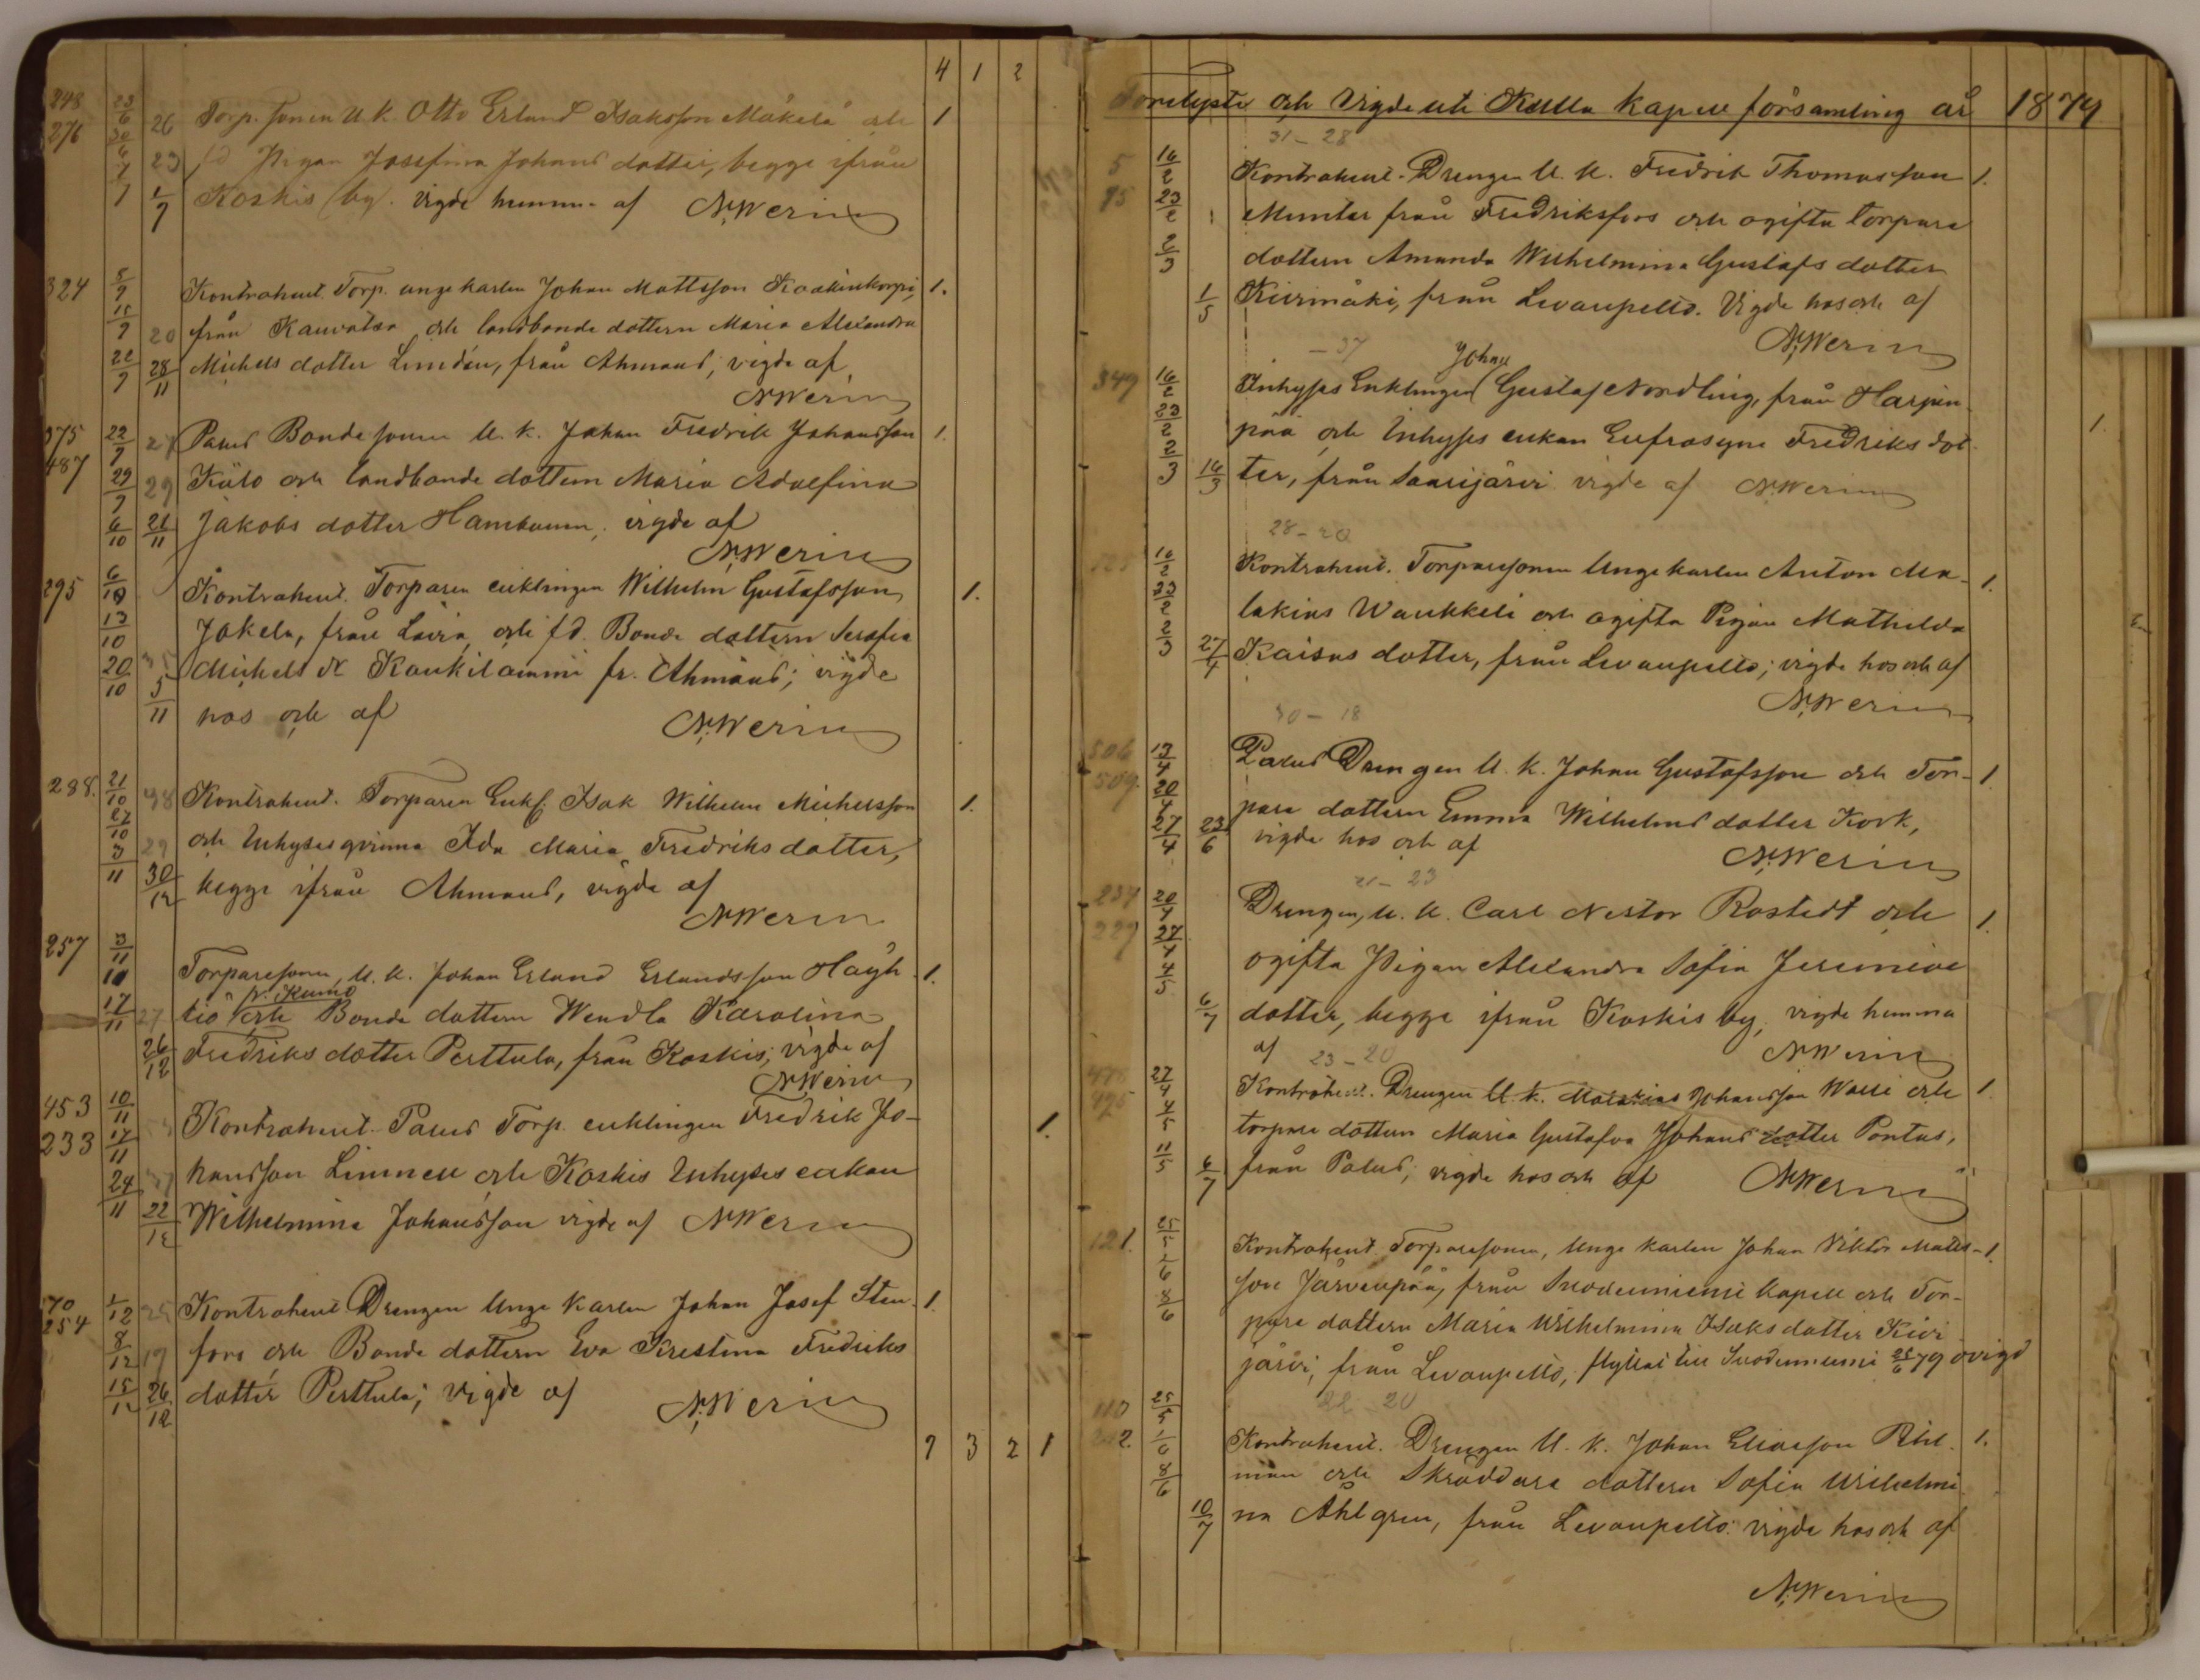 4 1 2
248 23/6 26 Torp. sonen U. K. Otto Erland Isaksson Mäkelä och 1
276 30/6 23 fd Pigan Josefina Johans dotter, begge ifrån
7/7 1/7 Koskis by. vigde hemma af N. Werin
324 8/9 Kontrahent. Torp. unge karlen Johan Mattsson Kaakinkorpi, 1.
15/9 20 från Kauvatsa och landbonde dottern Maria Alexandra
22/9 28/11 Michels dotter Lindén, från Ahmaus, vigde af
N. Werin
375 22/9 27 Palus Bonde sonen U. K. Johan Fredrik Johansson 1.
487 29/9 29 Külo och landbonde dottern Maria Adolfina
6/10 21/11 Jakobs dotter Hamburen, vigde af
N. Werin
295 6/10 Kontrahent. Torparen enklingen Wilhelm Gustafsson 1.
13/10 Jakela, från Lavia och fd. Bonde dottern Serafia
20/10 Michels dr Kaukilammi fr. Ahmaus; vigde
5/11 hos och af N. Werin
288. 21/10 48 Kontrahent. Torparen Enkl. Isak Wilhelm Michelsson 1.
27/10 29 och Inhyses qvinna Ida Maria Fredriks dotter,
3/11 30/12 begge ifrån Ahmaus, vigde af
N. Werin
257 3/11 Torparesonen, U. K. Johan Erland Erlandsson Häyh- 1.
10 fr. Kumo
17/11 27 tiö och Bonde dottern Wendla Karolina
26/12 Fredriks dotter Perttula, från Koskis; vigde af
N. Werin
453 10/11 Kontrahent. Palus Torp. enklingen Fredrik Jo- 1.
233 17/11 hansson Linnell och Koskis Inhyses enkan
24/11 22/12 Wilhelmina Johansson vigde af N. Werin
70 1/12 25 Kontrahent Drengen Unge karlen Johan Josef Sten- 1.
254 8/12 19 fors och Bonde dottern Eva Kristina Fredriks
15/12 26/12 dotter Perttula; vigde af N. Werin
9 3 2 1
Förelyste och Vigde uti Kulla kapell församling år 1879
31-28
5 16/2 Kontrahent. Drengen U. K. Fredrik Thomasson 1.
95 23/2 Munter från Fredriksfors och ogifta torpare
2/3 dottern Amanda Wilhelmina Gustafs dotter
1/5 Kivimäki, från Levanpelto. Vigde hos och af
N. Werin
-37 Johan
349 16/2 Inhyses Enklingen Gustaf Nordling, från Harjun-
23/2 pää och Inhyses enkan Eufrosyne Fredriks dot- 1.
2/3 16/3 ter, från Saarijärvi vigde af N. Werin
28-20
16/2 Kontrahent. Torparesonen Unge karlen Anton Ma- 1.
23/2 lakias Waukkeli och ogifta Pigan Mathilda
2/3 27/4 Kaisas dotter, från Levanpelto; vigde hos och af
N. Werin
30-18
506 13/4 Palus Drengen U. K. Johan Gustafsson och Tor- 1
509. 20/4 pare dottern Emma Wilhelms dotter Kork,
27/4 23/6 vigde hos och af N. Werin
21-23
237 20/4 Drengen, U. K. Carl Nestor Rostedt och 1.
229 27/4 ogifta Pigan Alexandra Sofia Jeremiæ
4/5 6/7 dotter, begge ifrån Koskis by, vigde hemma
af N. Werin
23-20
27/4 Kontrahent. Drengen U. K. Johansson Walli och 1
4/5 torpare dottern Maria Gustafva Johans dotter Pontus,
11/5 6/7 från Palus; vigde hos och af N. Werin
121. 25/5 Kontrahent. Torparesonen, Unge karlen Johan Viktor Matts- 1
1/6 son Järvenpää, från Suodenniemi kapell och Tor-
8/6 pare dottern Maria Wilhelmina Isaks dotter Kivi-
järvi; från Levanpelto, flyttat till Suodenniemi 25/6 79 ovigd
22-20
110 25/5
1/6 Kontrahent. Drengen U. K. Johan Eliasson Rihl- 1.
8/6 man och Skräddare dottern Sofia Wilhelmi-
10/7 na Åhlgren, från Levanpelto. vigde hos och af
N. Werin